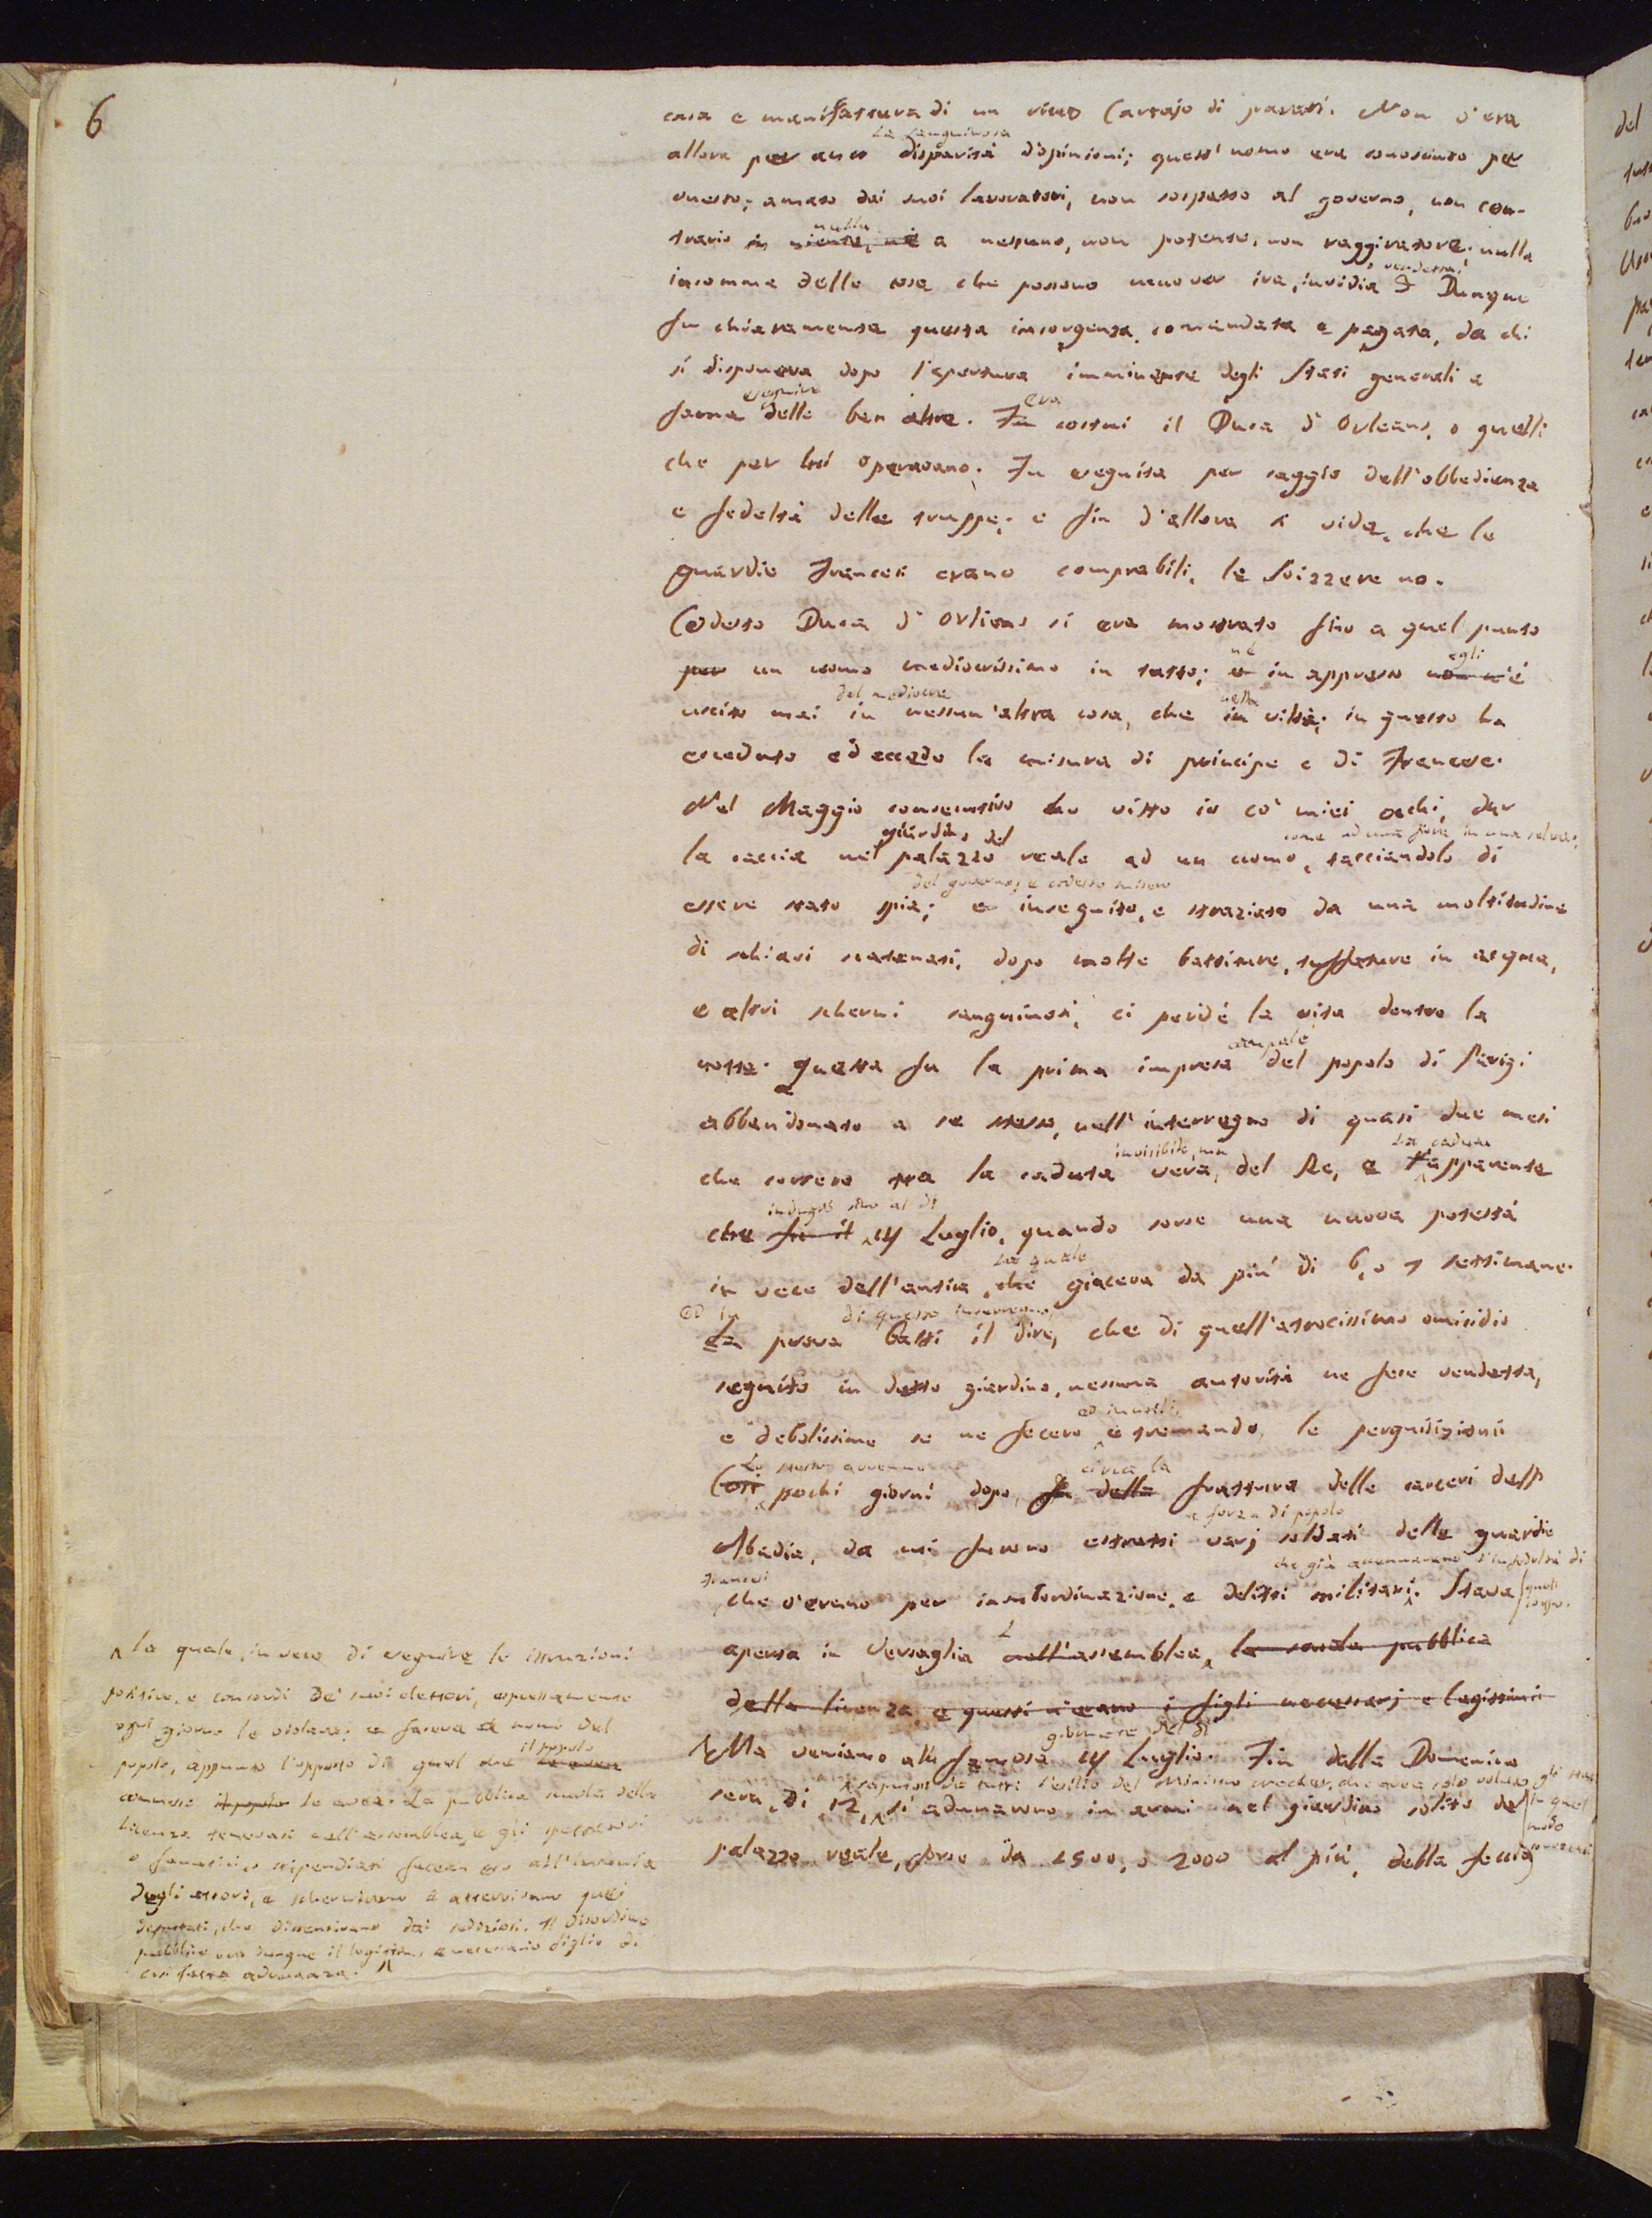 6
casa e manifattura di un ricco Cartajo di parati. Non v'era
la sanguinosa
allora per anco disparità d'opinioni; quest'uomo era conosciuto per
onesto; amato dai suoi lavoratori, non sospetto al governo, non con-
nulla
trario in niente, nè a nessuno, non potente, non raggiratore; nulla
o vendetta;
insomma delle cose che possono muover ira, invidia Dunque
fu chiaramente questa insorgenza, comandata e pagata, da chi
si disponeva dopo l'apertura imminente degli Stati generali a
eseguire
farne delle ben altre. Fu costui il Duca d'Orleans, o quelli
era
che per lui operavano. Fu eseguita per saggio dell'obbedienza
e fedeltà delle truppe; e fin d'allora si vide, che le
guardie Francesi erano comprabili, le Svizzere no.
Codesto Duca d'Orleans si era mostrato fino a quel punto
nè egli
per un uomo mediocrissimo in tutto; e in appresso non n'è
del mediocre nella
uscito mai in nessun'altra cosa, che in viltà; in questo ha
ecceduto ed eccede la misura di principe e di Francese.
Nel Maggio consecutivo ho visto io co' miei occhi, dar
giardino del come ad una fiera in una selva;
la caccia nel palazzo reale ad un uomo, tacciandolo di
del governo; e codesto misero
essere stato spia; e inseguito, e straziato da una moltitudine
di schiavi scatenati, dopo molte battiture, tuffature in acqua,
e altri scherni sanguinosi, ci perdè la vita dentro la
campale
notte. Questa fu la prima impresa del popolo di Parigi
abbandonato a se stesso, nell'interregno di quasi due mesi
invisibile, ma la caduta
che corsero tra la caduta vera, del Re, e l'apparente
indugiò sino al dì
che fu il 14 Luglio, quando sorse una nuova potestà
la quale
in vece dell'antica, che giaceva da più di 6, o 7 settimane.
Ed in di questo interregno
La prova basti il dire, che di quell'atrocissimo omicidio
seguito in detto giardino, nessuna autorità ne fece vendetta,
ed inutili,
e debolissime se ne fecero e tremando, le perquisizioni
Lo stesso avvenne circa la
Così pochi giorni dopo, fu della frattura delle carceri dell'
a forza di popolo
Abadia, da cui furono estratti varj soldati delle guardie
Francesi che già accennavano l'infedeltà di
che v'erano per insubordinazione, e delitti militari. Stava
quel corpo.
L
aperta in Versaglia nell'assemblea, la scuola pubblica
della licenza, e questi n'erano i figli necessarj e legittimi
giornata del dì
Ma veniamo alla famosa 14 Luglio. Fin dalla Domenica
risaputosi da tutti l'esilio del Ministro Necker, che avea solo voluto gli stati
in quel modo
sera, dì 12, si adunarono in armi nel giardino solito del
palazzo reale, forse da 1500, o 2000 al più, della feccia
la quale, in vece di eseguire le istruzioni
positive, e concordi de' suoi elettori, espressamente
ogni giorno le violava; e faceva a nome del
il popolo
popolo, appunto l'opposto di quel che
commesso il popolo le avea. La pubblica scuola della
licenza tenevasi nell'assemblea, e gli spettatori
o fanatici, o stipendiati facean eco all'insania
degli attori, e schernivano e atterrivano quei
deputati, che dissentivano dai sediziosi. Il disordine
pubblico era dunque il legittimo, e necessario figlio di
così fatta adunanza.